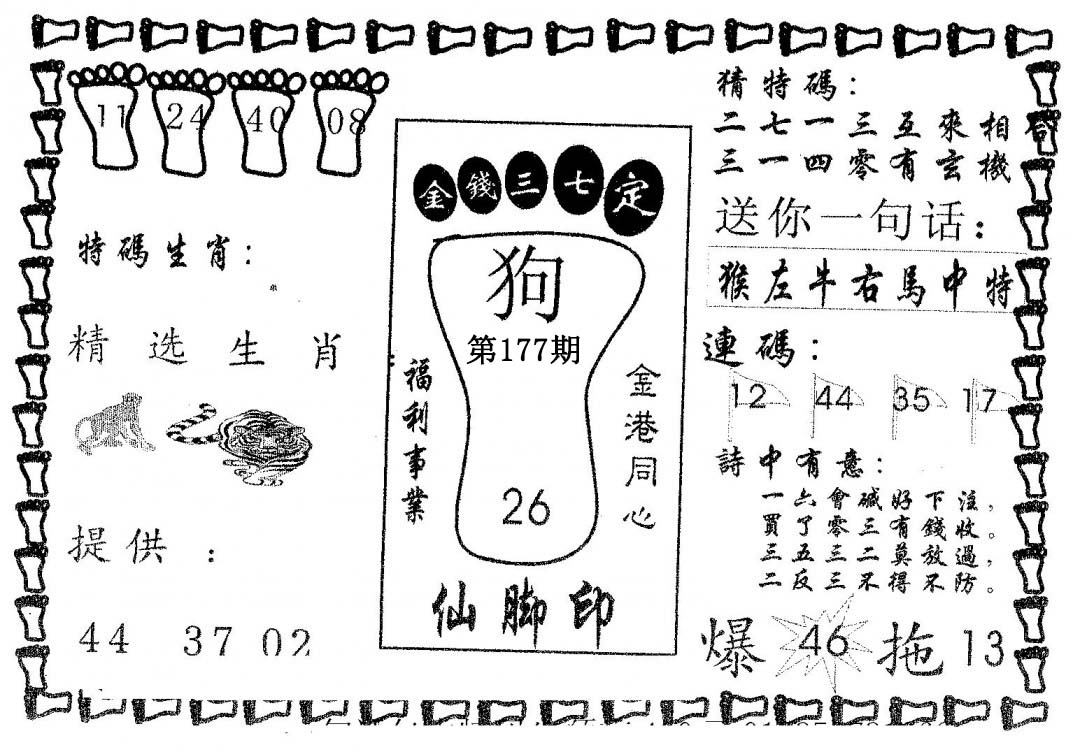 11 24 40 08
特碼生肖：
精选生肖：
提供：
44 37 02
金錢三七定
狗
第177期
福利事業
金港同心
26
仙脚印
猜特碼：
二七一三五來相合
三一四零有玄機
送你一句话：
猴左牛右馬中特
連碼：
12 44 35 17
詩中有意：
一六會碱好下注，
買了零三有錢收。
三五三二莫放過，
二反三不得不防。
爆 46 拖 13